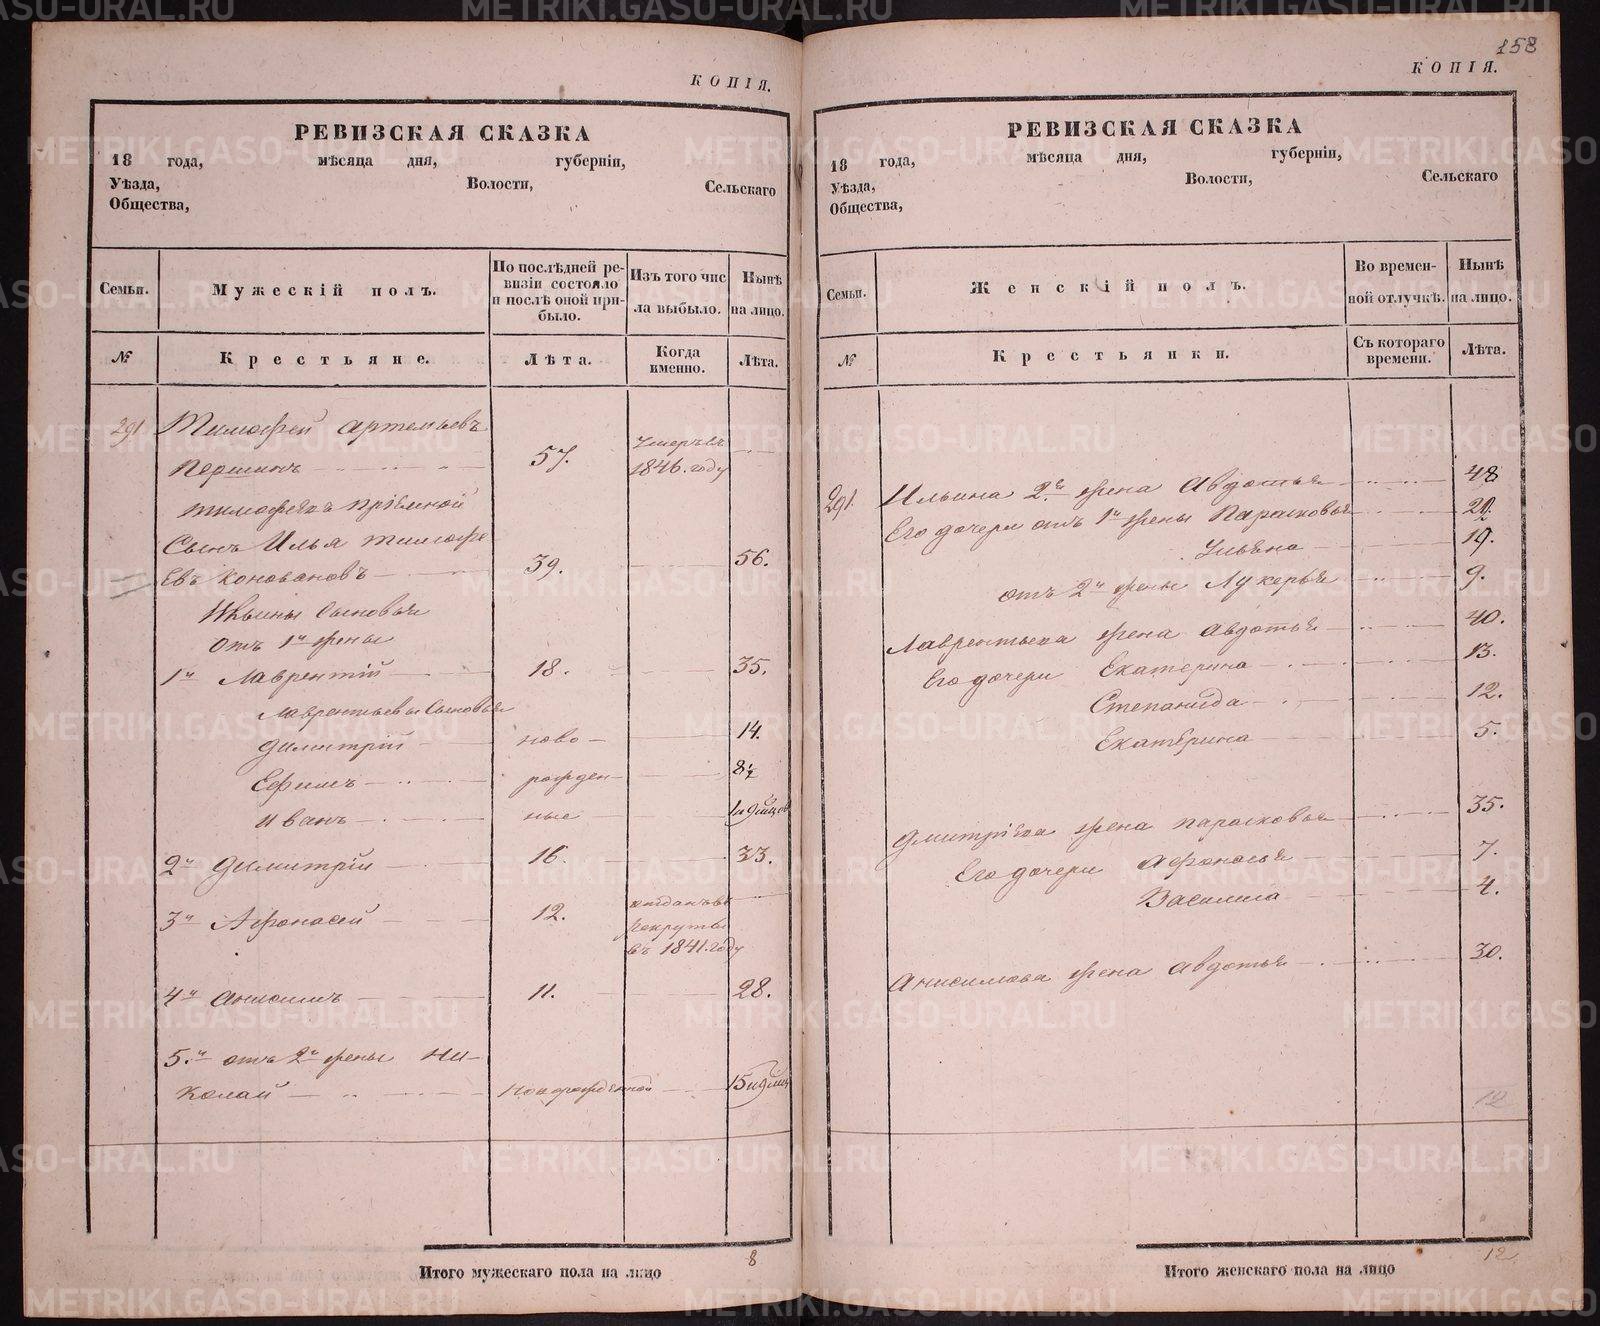 КОПІЯ.
РЕВИЗСКАЯ СКАЗКА
18 года, мѣсяца дня, губерніи,
Уѣзда, Волости, Сельскаго
Общества,
Семьи.
Мужескій полъ.
По послѣдней ре-
визіи состояло
и послѣ оной при-
было.
Изъ того чис
ла выбыло.
Нынѣ
на лицо.
№
Крестьяне.
Лѣта.
Когда
именно.
Лѣта.
291 Тимофей Артемьевъ
Першинъ 57. Умеръ въ
1846. году
Тимофѣевъ пріемной
Сынъ Илья Тимофе
евъ Коноваловъ 39. 56.
Ильины Сыновья
отъ 1й жены
1й Лаврентій 18. 35.
Лаврентьевы Сыновья
Димитрій ново 14.
Ефимъ рожден 8½
Иванъ ные
2й Димитрій 16. 33.
3й Афонасей 12. отданъ въ
рекруты
въ 1841. году
4й Анисимъ 11. 28.
5й отъ 2й жены Ни-
колай новорожденной
Итого мужескаго пола на лицо 8
158
КОПІЯ.
РЕВИЗСКАЯ СКАЗКА
18 года, мѣсяца дня, губерніи,
Уѣзда, Волости, Сельскаго
Общества,
Семьи.
Женскій полъ.
Во времен-
ной отлучкѣ.
Нынѣ
на лицо.
№
Крестьянки.
Съ котораго
времени.
Лѣта.
291. Ильина 2я жена Авдотья 48
Его дочери отъ 1й жены Парасковья
Ульяна 19.
отъ 2й жены Лукерья 9.
Лаврентьева жена Авдотья 40.
Его дочери Екатерина 13.
Степанида 12.
Екатерина 5.
Дмитріева жена Парасковья 35.
Его дочери Афонасья 7.
Василиса 4.
Анисимова жена Авдотья 30.
12
Итого женскаго пола на лицо 12
METRIKI.GASO-URAL.RU